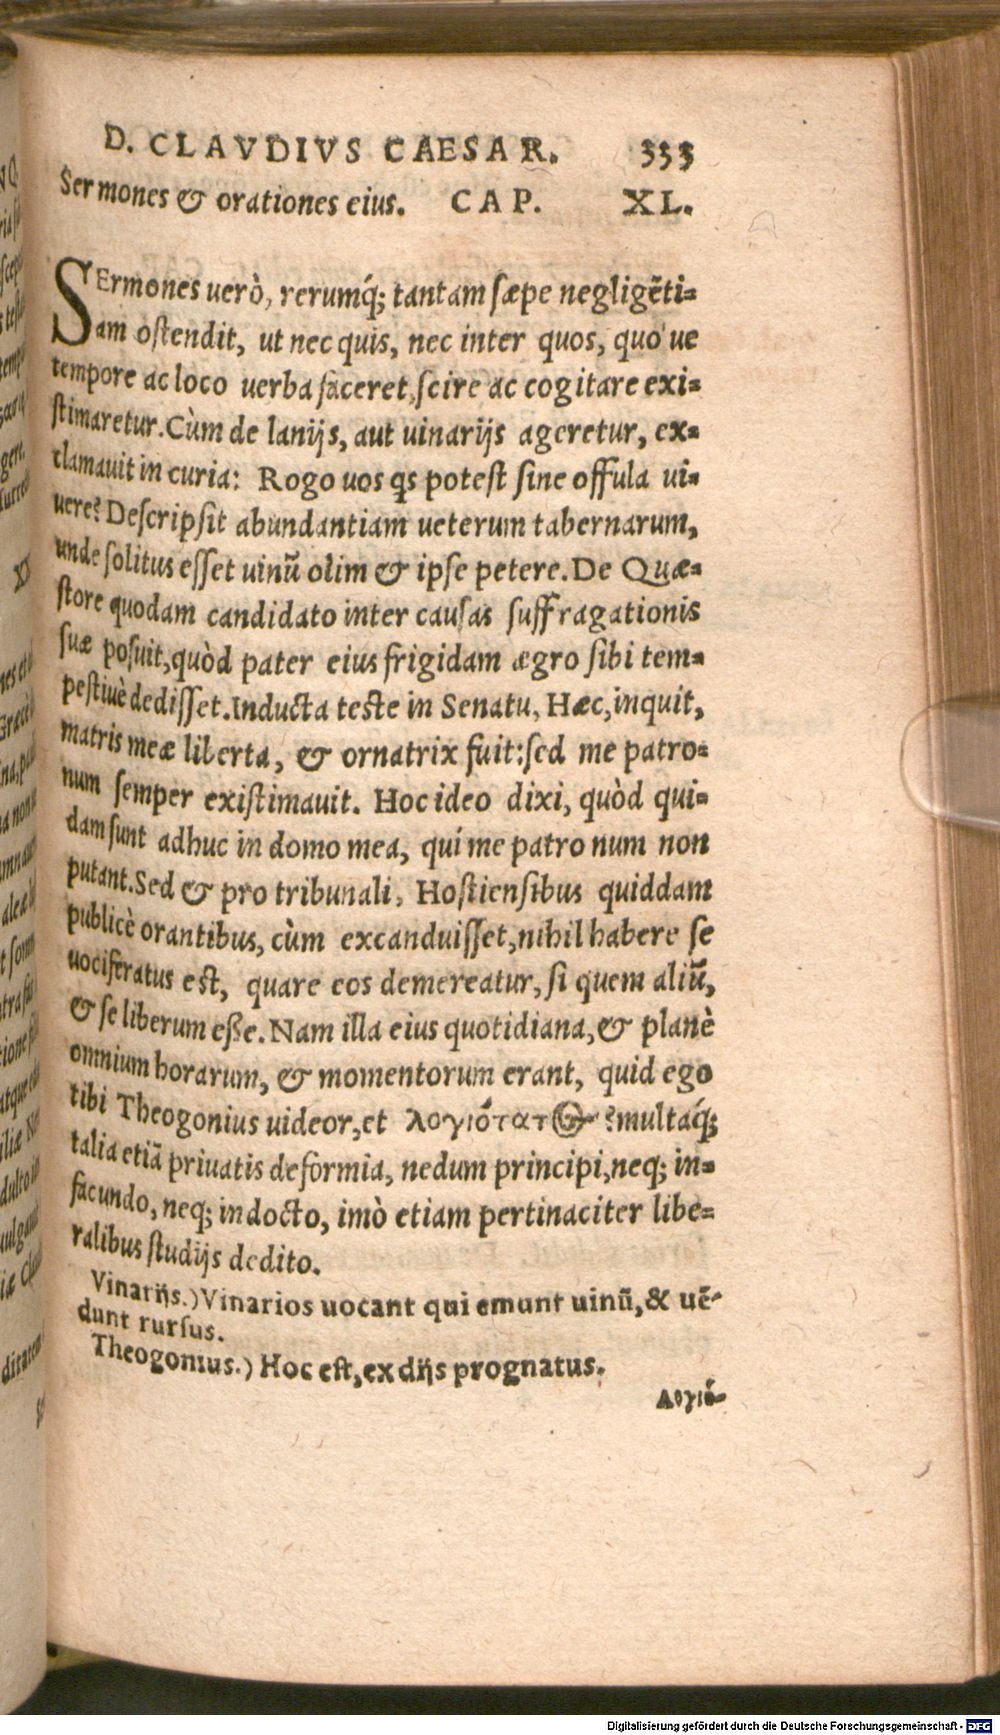 D. CLAVDIVS CAESAR. 333
Sermones & orationes eius. CAP. XL.
SErmones uerò, rerumq́; tantam sæpe negligẽti=
am ostendit, ut nec quis, nec inter quos, quo ue
tempore ac loco uerba faceret, scire ac cogitare exi=
stimaretur. Cùm de lanijs, aut uinarijs ageretur, ex=
clamauit in curia: Rogo uos qs potest sine offula ui=
uere? Descripsit abundantiam ueterum tabernarum,
unde solitus esset uinũ olim & ipse petere. De Quæ=
store quodam candidato inter causas suffragationis
suæ posuit, quòd pater eius frigidam ægro sibi tem=
pestiuè dedisset. Inducta teste in Senatu, Hæc, inquit,
matris meæ liberta, & ornatrix fuit: sed me patro=
num semper existimauit. Hoc ideo dixi, quòd qui=
dam sunt adhuc in domo mea, qui me patronum non
putant. Sed & pro tribunali, Hostiensibus quiddam
publicè orantibus, cùm excanduisset, nihil habere se
uociferatus est, quare eos demereatur, si quem aliũ,
& se liberum esse. Nam illa eius quotidiana, & planè
omnium horarum, & momentorum erant, quid ego
tibi Theogonius uideor, et λογιότατος? multaq́;
talia etiã priuatis deformia, nedum principi, neq; in=
facundo, neq; indocto, imò etiam pertinaciter libe=
ralibus studijs dedito.
Vinarijs.) Vinarios uocant qui emunt uinũ, & uẽ-
dunt rursus.
Theogonius.) Hoc est, ex dijs prognatus.
Λογιό-
Digitalisierung gefördert durch die Deutsche Forschungsgemeinschaft - DFG